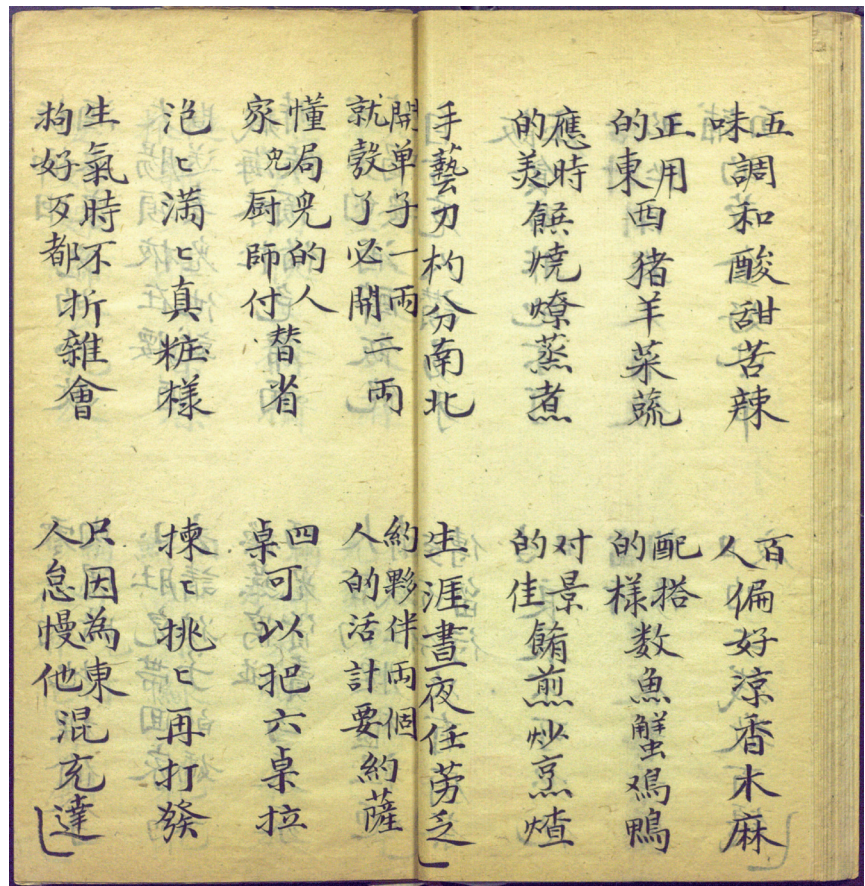 五味調和酸甜苦辣
百人偏好涼香木麻
正用的東西猪羊菜蔬
配搭的樣数魚蟹鳮鴨
應時的美饌燒燎蒸煮
对景的佳餚煎炒烹
手藝刀杓分南北
生涯晝夜任劳乏
開单子一兩就彀了必開二兩
約夥伴兩個人的活計要約薩
懂局児的人家児厨師付替省
四桌可以把六桌拉
泡〻满〻真粧樣
揀〻挑〻再打發
生氣時不拘好歹都折雜會
只因為東人怠慢他混充達